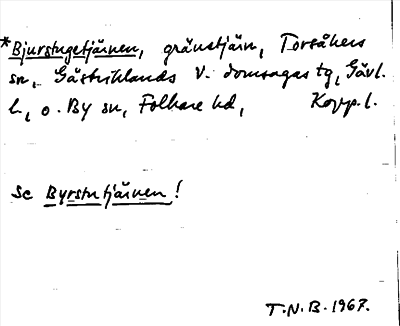 *Bjurstugetjärnen, gränstjärn, Torsåkers
sn, Gästriklands V. domsagas tg, Gävl.
l., o. By sn, Folkare hd, Kopp. l.
Se Byrstutjärnen!
T.N.B. 1967.